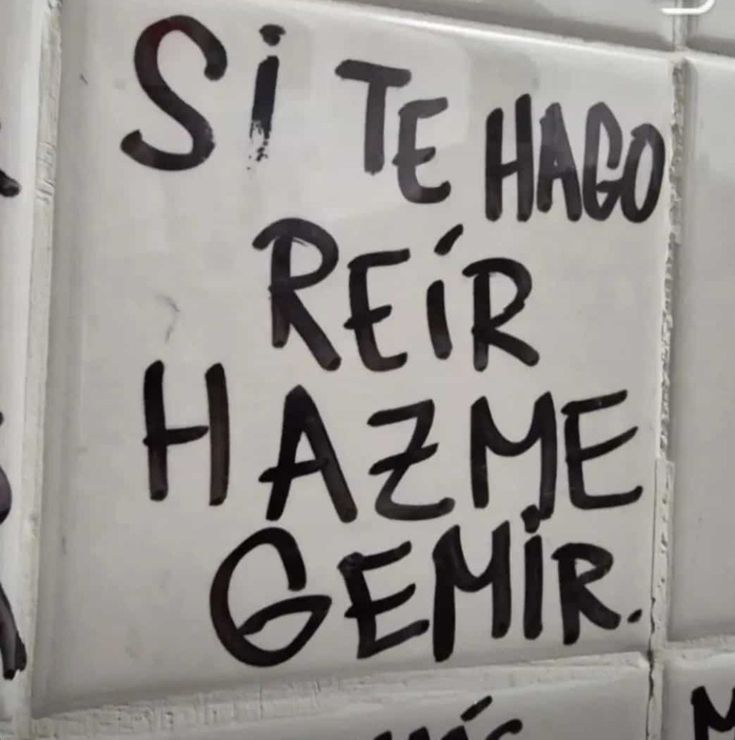 Si TE HAGO
REíR
HAZME
GEMiR.